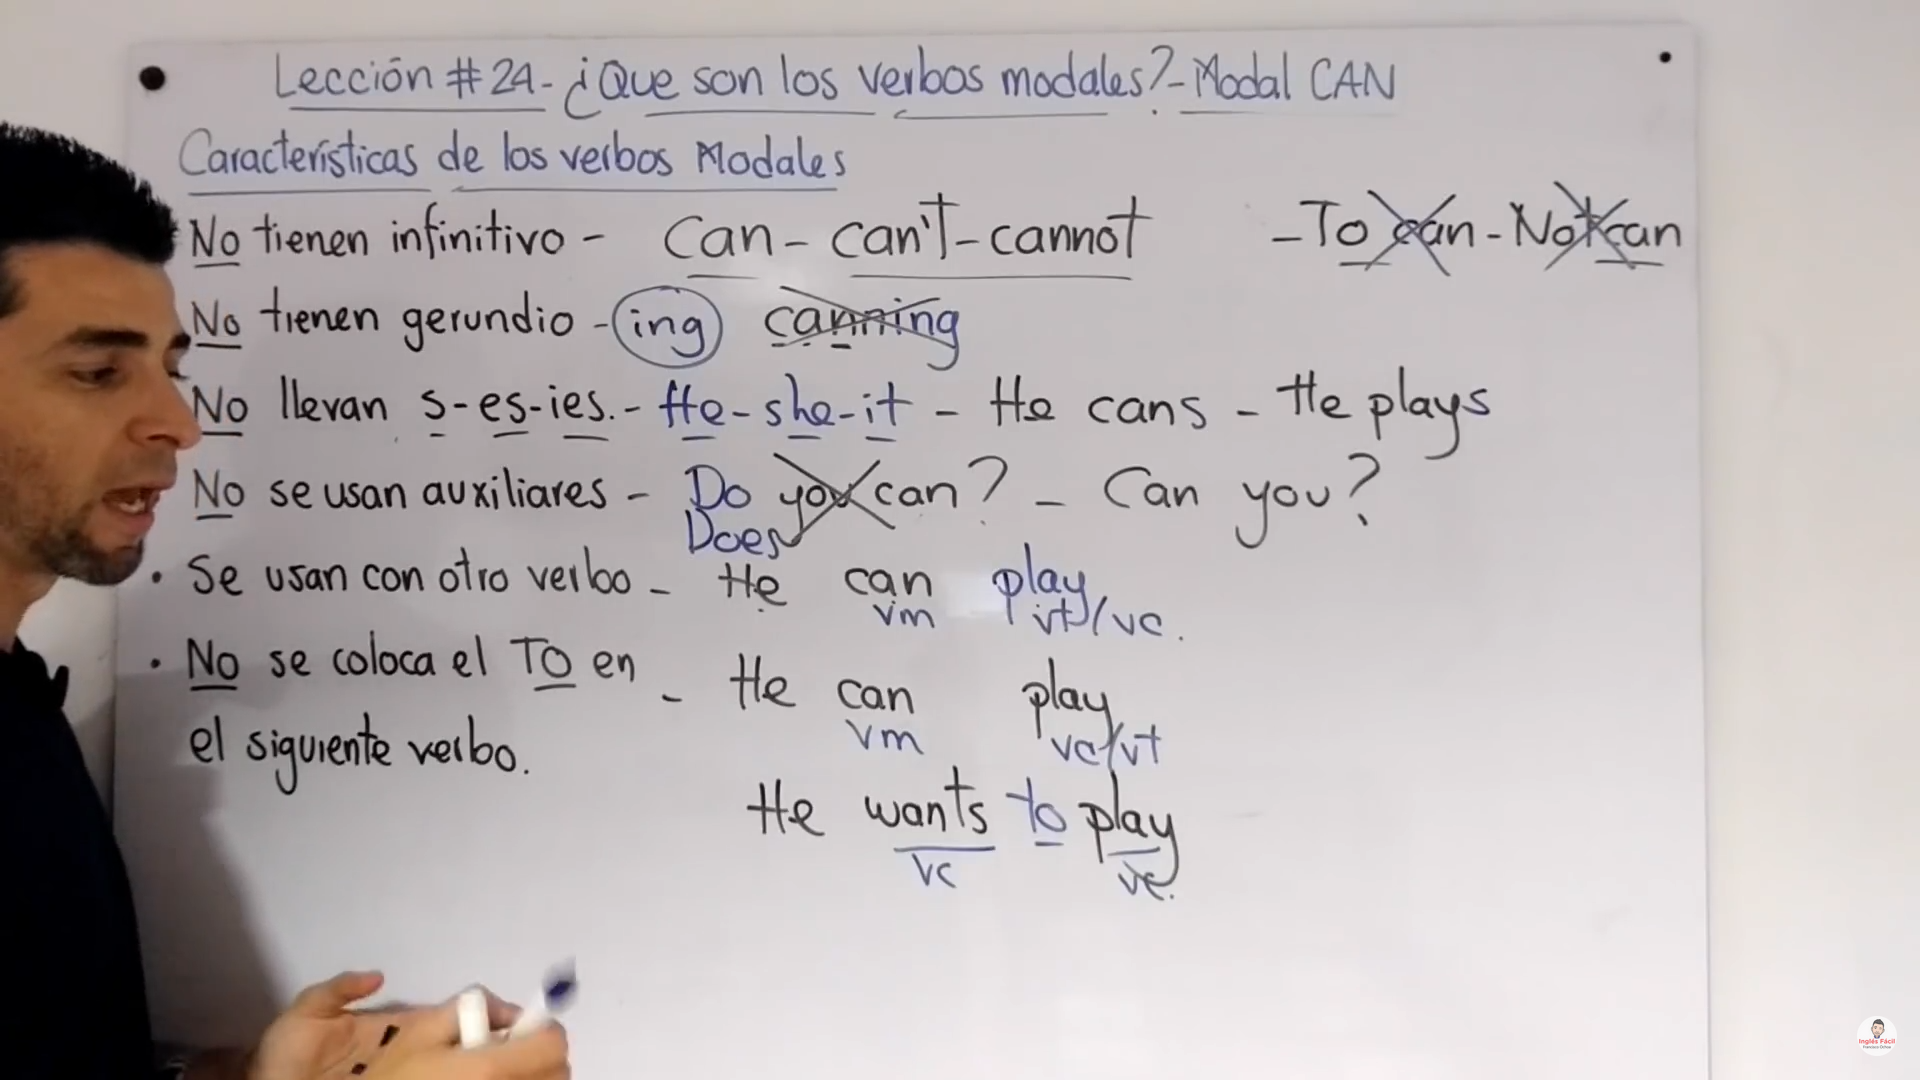 Lección #24-¿Que son los verbos modales?-Modal CAN
Características de los verbos Modales
No tienen infinitivo - Can - can't - cannot - To can - Not can
No tienen gerundio - ing canning
No llevan s-es-ies. - He-she-it - He cans - He plays
No se usan auxiliares - Do you can? - Can you?
Does
· Se usan con otro verbo - He can play
vm vt/vc.
· No se coloca el TO en - He can play
vm vc/vt
el siguiente verbo.
He wants to play
vc vc.
Inglés Fácil
Francisco Ochoa